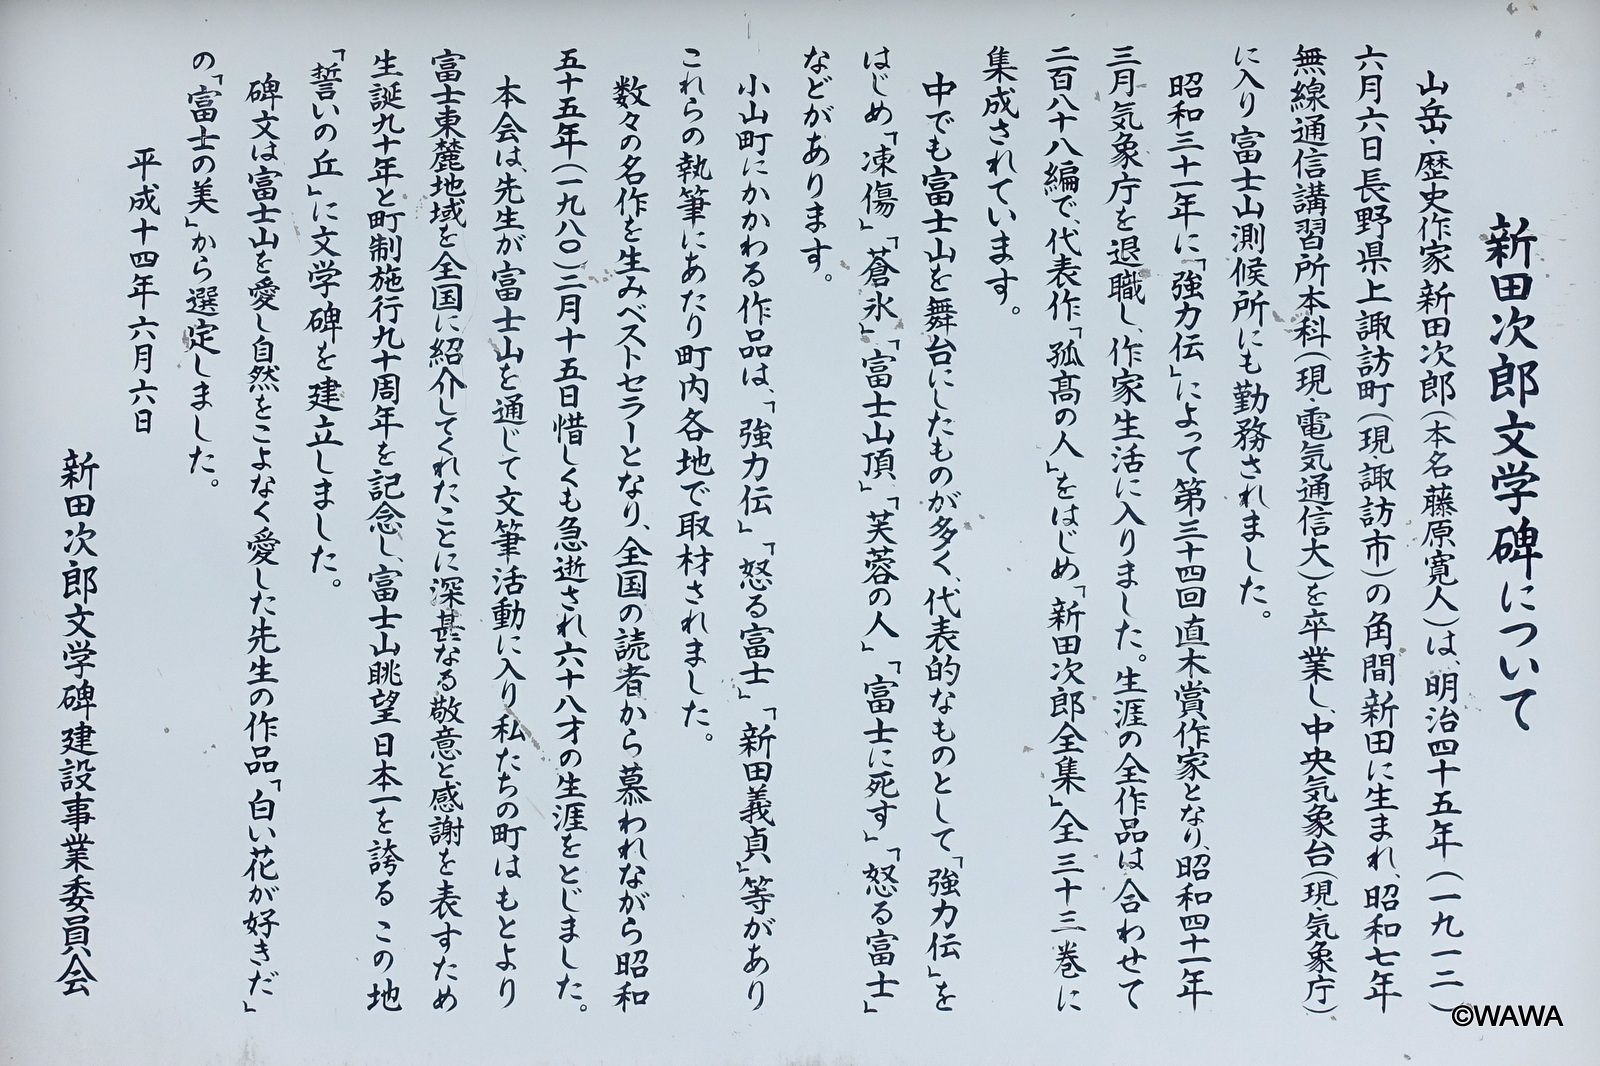 新田次郎文学碑について
山岳・歴史作家新田次郎(本名藤原寛人)は、明治四十五年(一九一二)
六月六日長野県上諏訪町(現諏訪市)の角間新田に生まれ、昭和七年
無線通信講習所本科(現・電気通信大)を卒業し、中央気象台(現・気象庁)
に入り富士山測候所にも勤務されました。
昭和三十一年に「強力伝」によって第三十四回直木賞作家となり、昭和四十一年
三月気象庁を退職し、作家生活に入りました。生涯の全作品は合わせて
二百八十八編で、代表作「孤高の人」をはじめ「新田次郎全集」全三十三巻に
集成されています。
中でも富士山を舞台にしたものが多く、代表的なものとして「強力伝」を
はじめ「凍傷」「蒼氷」「富士山頂」「芙蓉の人」「富士に死す」「怒る富士」
などがあります。
小山町にかかわる作品は、「強力伝」「怒る富士」「新田義貞」等があり
これらの執筆にあたり町内各地で取材されました。
数々の名作を生みベストセラーとなり、全国の読者から慕われながら昭和
五十五年(一九八〇)三月十五日惜しくも急逝され六十八才の生涯をとじました。
本会は、先生が富士山を通じて文筆活動に入り私たちの町はもとより
富士東麓地域を全国に紹介してくれたことに深甚なる敬意と感謝を表すため
生誕九十年と町制施行九十周年を記念し、富士山眺望日本一を誇るこの地
「誓いの丘」に文学碑を建立しました。
碑文は富士山を愛し自然をこよなく愛した先生の作品「白い花が好きだ」
の「富士の美」から選定しました。
平成十四年六月六日
新田次郎文学碑建設事業委員会
©WAWA